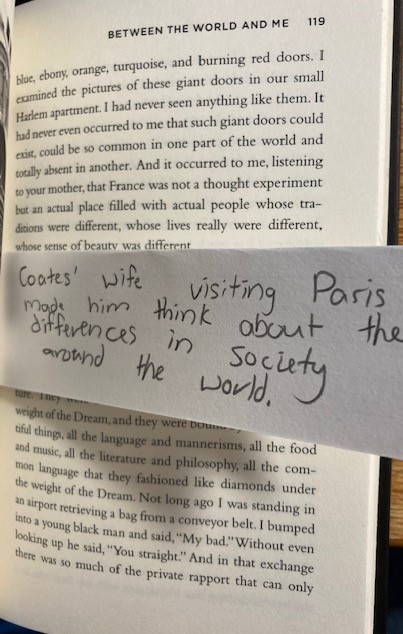 BETWEEN THE WORLD AND ME 119
blue, ebony, orange, turquoise, and burning red doors. I
examined the pictures of these giant doors in our small
Harlem apartment. I had never seen anything like them. It
had never even occurred to me that such giant doors could
exist, could be so common in one part of the world and
totally absent in another. And it occurred to me, listening
to your mother, that France was not a thought experiment
but an actual place filled with actual people whose tra-
ditions were different, whose lives really were different,
whose sense of beauty was different
Coates' wife visiting Paris
made him think about the
differences in society
around the world.
ture. They
weight of the Dream, and they were
tiful things, all the language and mannerisms, all the food
and music, all the literature and philosophy, all the com-
mon language that they fashioned like diamonds under
the weight of the Dream. Not long ago I was standing in
an airport retrieving a bag from a conveyor belt. I bumped
into a young black man and said, "My bad." Without even
looking up he said, "You straight." And in that exchange
there was so much of the private rapport that can only